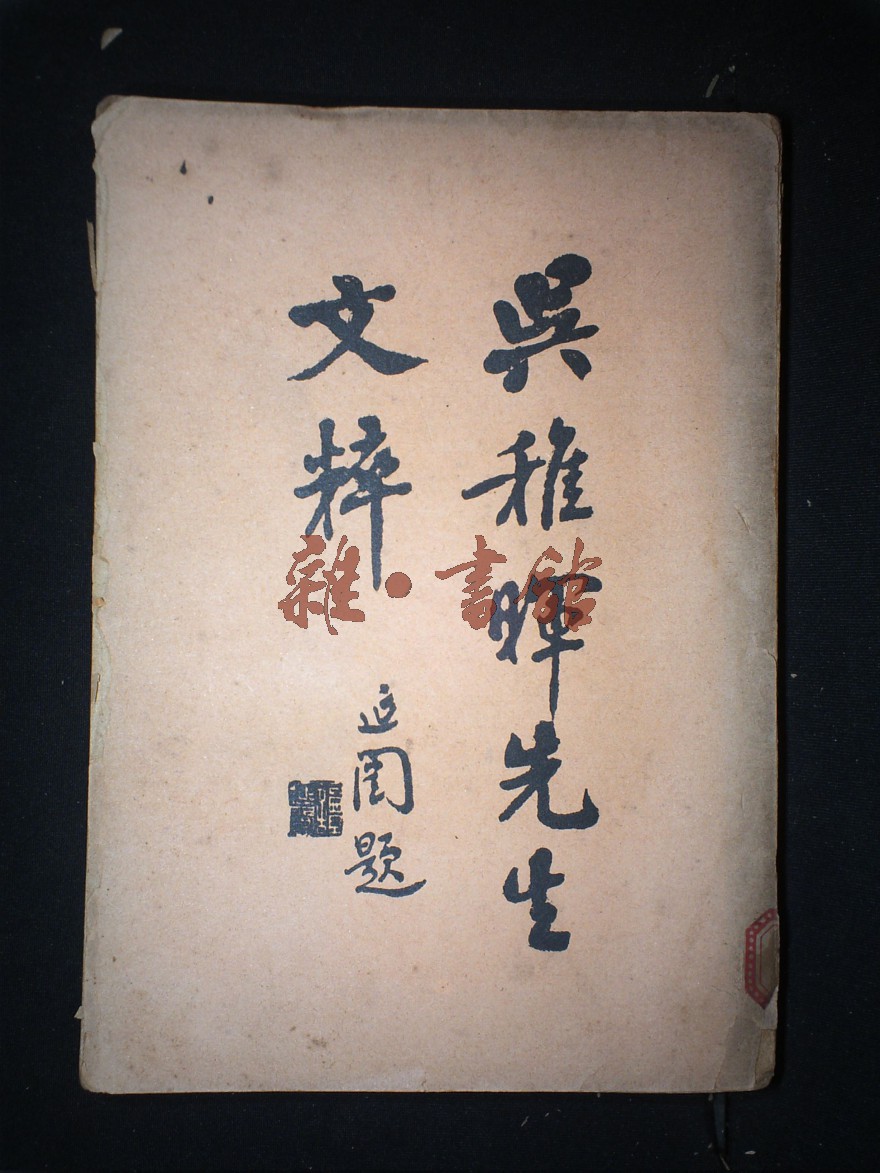 吳稚暉先生
文粹
延闓題
雜·書館